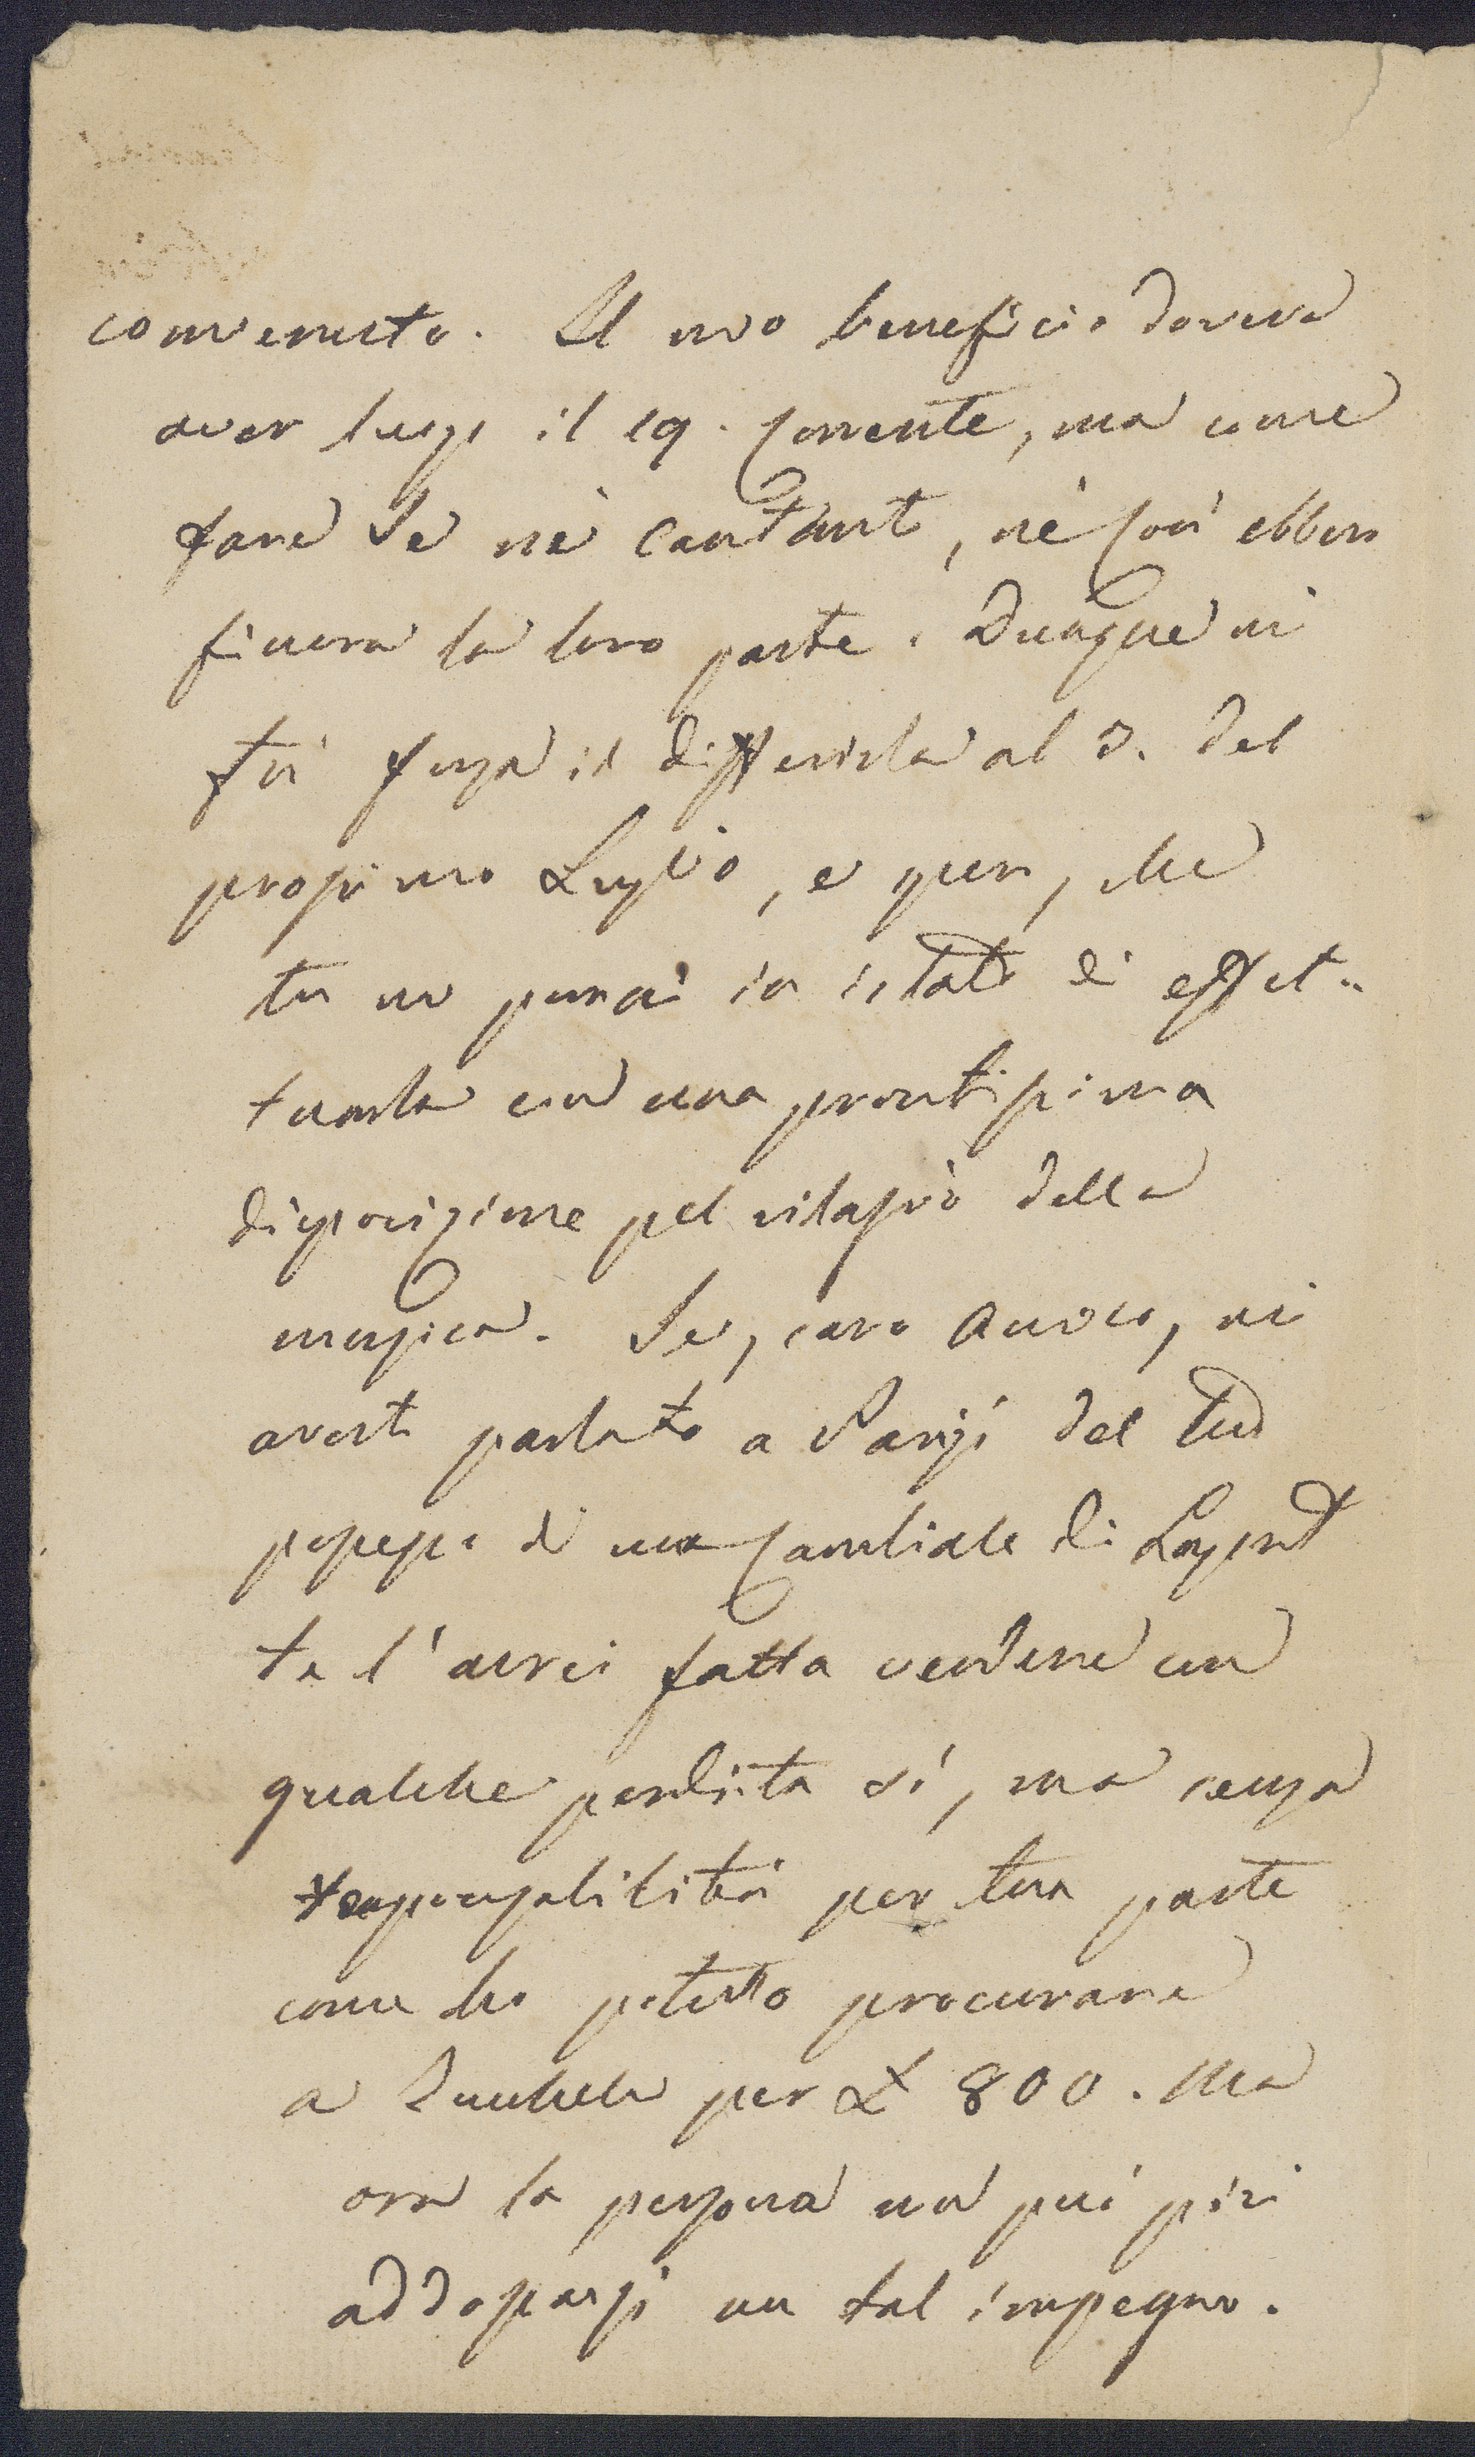 convenuto. Il mio beneficio doveva
aver luogo il 19. Corrente, ma come
fare se nè Cantanti, nè Cori ebbero
finora la loro parte. Dunque mi
fù forza il differirla al 3. del
prossimo Luglio, e spero, che
tu mi porrai in istato di effet=
tuarla con una prontissima
disposizione pel rilascio della
musica. Se, caro Amico, mi
avesti parlato a Parigi del tuo
possesso di una Cambiale di
te l'avrei fatta vendere con
qualche perdita sì, ma senza
responsabilità per tua parte
come ho potuto procurare
a per £ 800. Ma
ora la persona non può più
addossarsi un tal impegno.